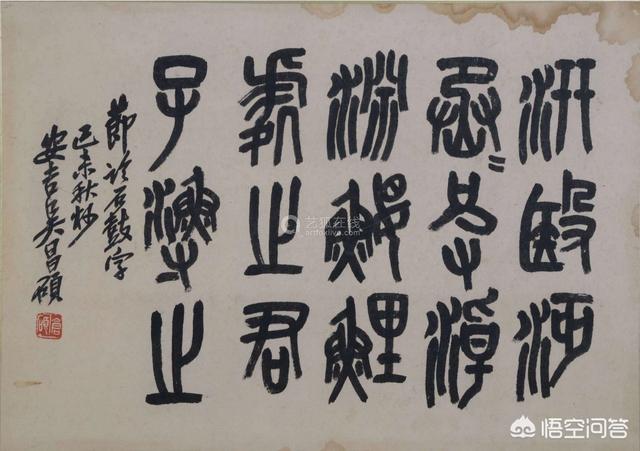 汧殹沔
丞〻皮淖
淵鰋鯉
處之君
子漁之
節臨石鼓字
己未秋杪
安吉吳昌碩
艺狐在线
artfoxlive.com
悟空问答